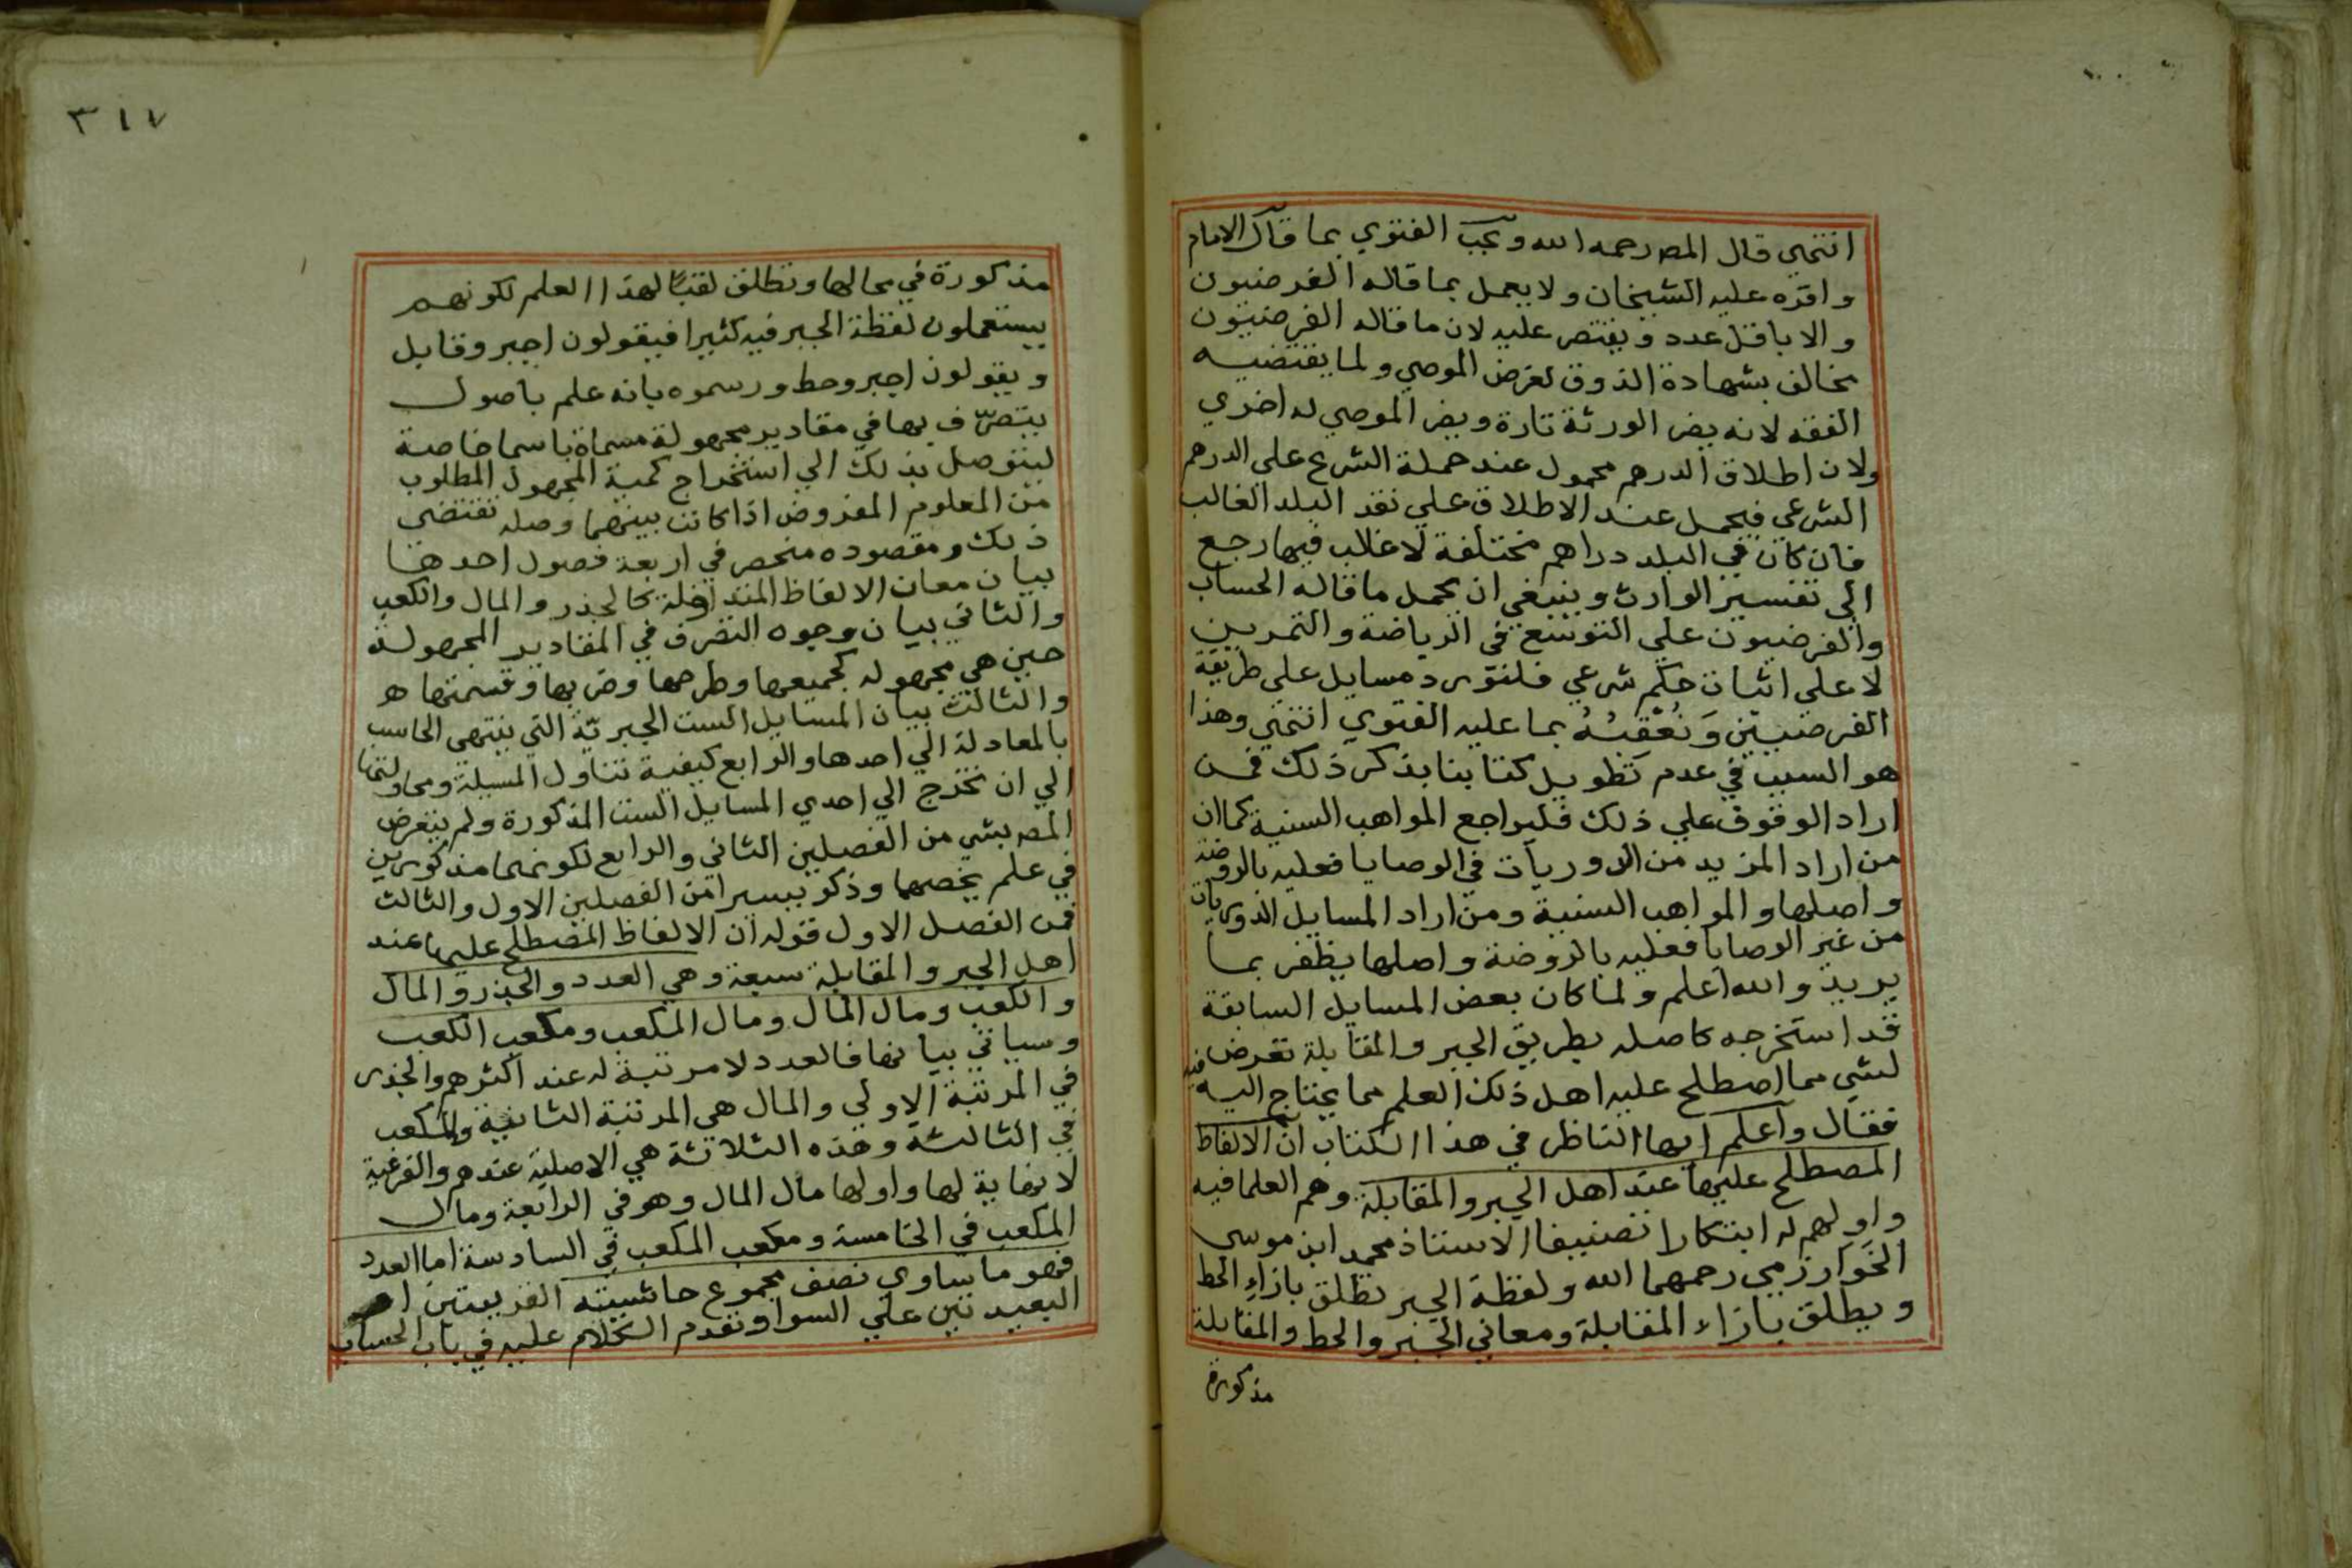 انتهى قال المص رحمه الله ويجب الفتوي بما قال الامام
واقره عليه الشيخان ولا يعمل بما قاله الفرضيون
والا باقل عدد ويقتصر عليه لان ما قاله الفرضيون
يخالف بشهادة الذوق لغرض الموصي ولما يقتضيه
الفقه لانه يضر الورثة تارة ويضر الموصي له اخري
ولان اطلاق الدرهم محمول عند حملة الشرع على الدرهم
الشرعي فيحمل عند الاطلاق علي نقد البلد الغالب
فان كان في البلد دراهم مختلفة لا غالب فيها رجع
الي تفسير الوارث وينبغي ان يحمل ما قاله الحساب
والفرضيون علي التوسع في الرياضة والتمرين
لا علي اثبات حكم شرعي فلنورد مسايل علي طريقة
الفرضيين ونعقبه بما عليه الفتوي انتهي وهذا
هو السبب في عدم تطويل كتابنا بذكر ذلك فمن
اراد الوقوف علي ذلك فليراجع المواهب السنية كما ان
من اراد المزيد من الدوريات في الوصايا فعليه بالروضة
واصلها والمواهب السنية ومن اراد المسايل الدوريات
من غير الوصايا فعليه بالروضة واصلها يظفر بما
يريد والله اعلم ولما كان بعض المسايل السابقة
قد استخرجه كاصله بطريق الجبر والمقابلة تعرض فيه
لشي مما اصطلح عليه اهل ذلك العلم مما يحتاج اليه
فقال واعلم ايها الناظر في هذا الكتاب ان الالفاظ
المصطلح عليها عند اهل الجبر والمقابلة وهم العلما فيه
واولهم له ابتكارا تصنيفا الاستاذ محمد ابن موسى
الخوارزمي رحمهما الله ولفظة الجبر تطلق بازاء الحط
ويطلق بازاء المقابلة ومعاني الجبر والحط والمقابلة
مذكورة
٣١٧
مذكورة في محالها وتطلق لقبا لهذا العلم لكونهم
يستعملون لفظة الجبر فيه كثيرا فيقولون اجبر وقابل
ويقولون اجبر وحط ورسموه بانه علم باصول
يتصرف بها في مقادير مجهولة مسماة باسما خاصة
ليتوصل بذلك الي استخراج كمية المجهول المطلوب
من المعلوم المفروض اذا كانت بينهما وصله تقتضي
ذلك ومقصوده منحصر في اربعة فصول احدها
بيان معان الالفاظ المتداولة كالجذر والمال والكعب
والثاني بيان وجوه التصرف في المقادير المجهولة
حين هي مجهوله كجميعها وطرحها وضربها وقسمتها
والثالث بيان المسايل الست الجبرية التي ينتهي الحاسب
بالمعادلة الي احدها والرابع كيفية تناول المسيلة ومحاولتها
الي ان تخرج الي احدي المسايل الست المذكورة ولم يتعرض
المص بشي من الفصلين الثاني والرابع لكونهما مذكورين
في علم يخصهما وذكر يسيرا من الفصلين الاول والثالث
فمن الفصل الاول قوله ان الالفاظ المصطلح عليها عند
اهل الجبر والمقابلة سبعة وهي العدد والجذر والمال
والكعب ومال المال ومال المكعب ومكعب الكعب
وسياتي بيانها فالعدد لا مرتبة له عند اكثرهم والجذر
في المرتبة الاولي والمال هي المرتبة الثانية والمكعب
في الثالثة وهذه الثلاثة هي الاصلية عندهم والفرعية
لا نهاية لها واولها مال المال وهو في الرابعة ومال
المكعب في الخامسة ومكعب المكعب في السادسة اما العدد
فهو ما ساوي نصف مجموع حاشيتيه القريبتين او
البعيدتين علي السوا وتقدم الكلام عليه في باب الحساب